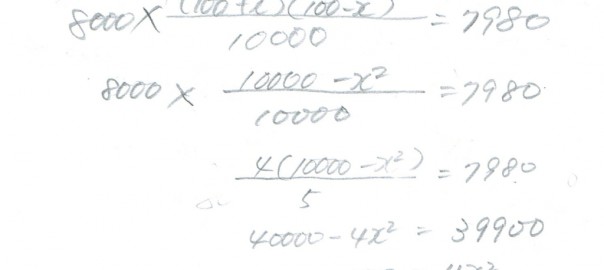 8000 × (100+x)(100-x) / 10000 = 7980
8000 × 10000 - x² / 10000 = 7980
4(10000 - x²) / 5 = 7980
40000 - 4x² = 39900